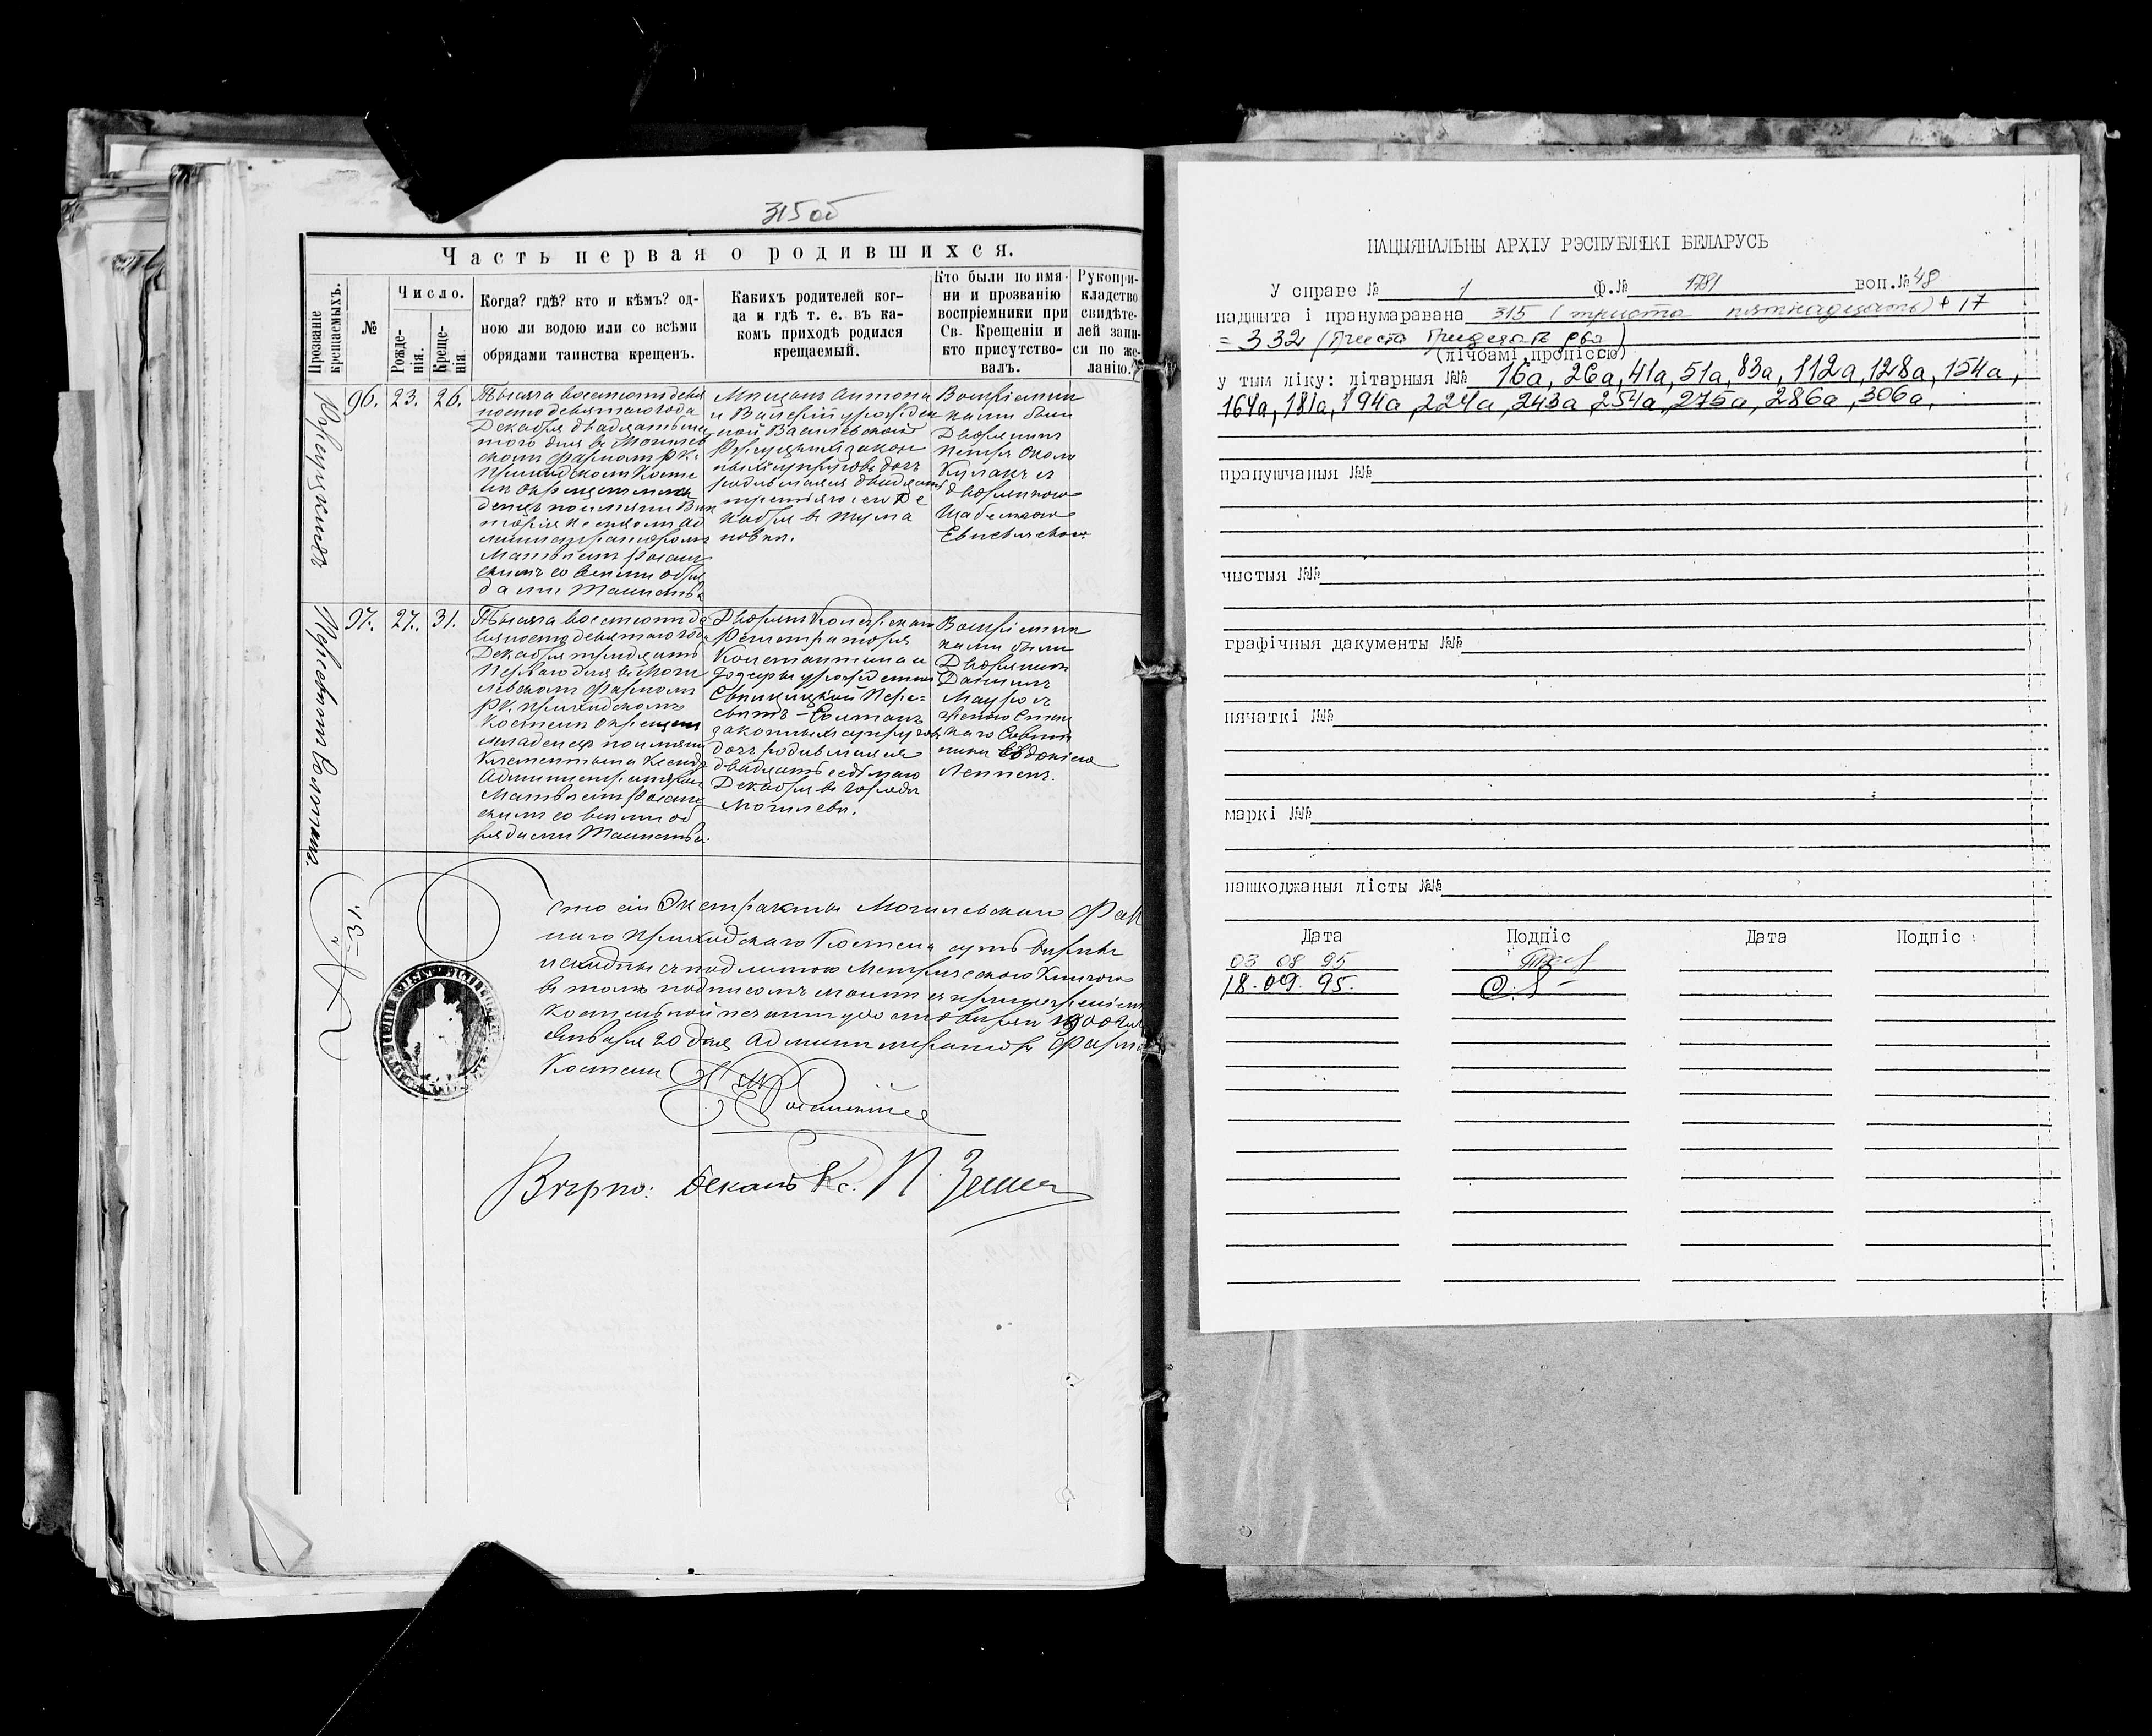 315 об
Часть первая о родившихся.
Прозваніе крещаемыхъ.
№
Число.
Рожде-
нія.
Креще-
нія.
Когда? гдѣ? кто и кѣмъ? од-
ною ли водою или со всѣми
обрядами таинства крещенъ.
Какихъ родителей ког-
да и гдѣ т. е. въ ка-
комъ приходѣ родился
крещаемый.
Кто были по имя-
ни и прозванію
воспріемники при
Св. Крещеніи и
кто присутство-
валъ.
Рукопри-
кладство
свидѣте-
лей запи-
си по же-
ланію.
96.
23.
26.
Тысяча восемьсотъ девя
носто девятаго года
Декабря двадцать шес
таго дня въ Могилев
скомъ Фарномъ РК.
Приходскомъ Косте
лѣ окрещенъ мла
денецъ по имяни Вик
торія Ксендзомъ Ад
министраторомъ
Матвѣемъ
скимъ со всѣми обря
дами Таинства
Мѣщанъ Антона
и Валеріи урожден
ной Василевской
закон
ныхъ супруговъ дочь
родившаяся двадцать
третьяго сего Де
кабря въ
Воспріемни
ками были
Дворянинъ
Петръ Около
Кулакъ съ
дворянкою
97.
27.
31.
Тысяча восемьсотъ де
вяносто девятаго года
Декабря тридцать
Перваго дня въ Моги
левскомъ Фарномъ
РК. Приходскомъ
Костелѣ окрещен
младенецъ по имяни
Клементина Ксендз
Администраторомъ
Матвѣемъ
скимъ со всѣми об
рядами Таинства.
Дворянъ Колежскаго
Регистратора
Константина и
урожденной
Пере-
свѣтъ-Солтанъ
законныхъ супруговъ
дочь родившаяся
двадцать седьмаго
Декабря въ городѣ
Могилевѣ.
Воспріемни
ками были
Дворянинъ
Даніилъ
Мауро съ
женою Статс
каго Совѣт
ника Евдокіею
Леппенъ.
Что сіи Экстракты Могилевскаго Фар
наго Приходскаго Костела суть вѣрны
и сходны съ подлинною Метрическою Книгою
въ томъ подписомъ моимъ съ приложеніемъ
Костельной печати удостовѣряю 1900 года
Января 20 дня Администраторъ Фарнаго
Костела
Вѣрно: Деканъ Кс. П.
НАЦЫЯНАЛЬНЫ АРХІУ РЭСПУБЛІКІ БЕЛАРУСЬ
У справе № 1 ф.№ 1781 воп.№ 48
падшыта і пранумаравана 315 (триста пятнадцать) + 17
= 332 (триста тридцать два)
(лічбамі, пропіссю)
у тым ліку: літарныя №№ 16а, 26а, 41а, 51а, 83а, 112а, 128а, 154а,
164а, 181а, 194а, 224а, 243а, 254а, 275а, 286а, 306а,
прапушчаныя №№
чыстыя №№
графічныя дакументы №№
пячаткі №№
маркі №№
пашкоджаныя лісты №№
Дата Подпіс Дата Подпіс
03 08 95
18.09.95.